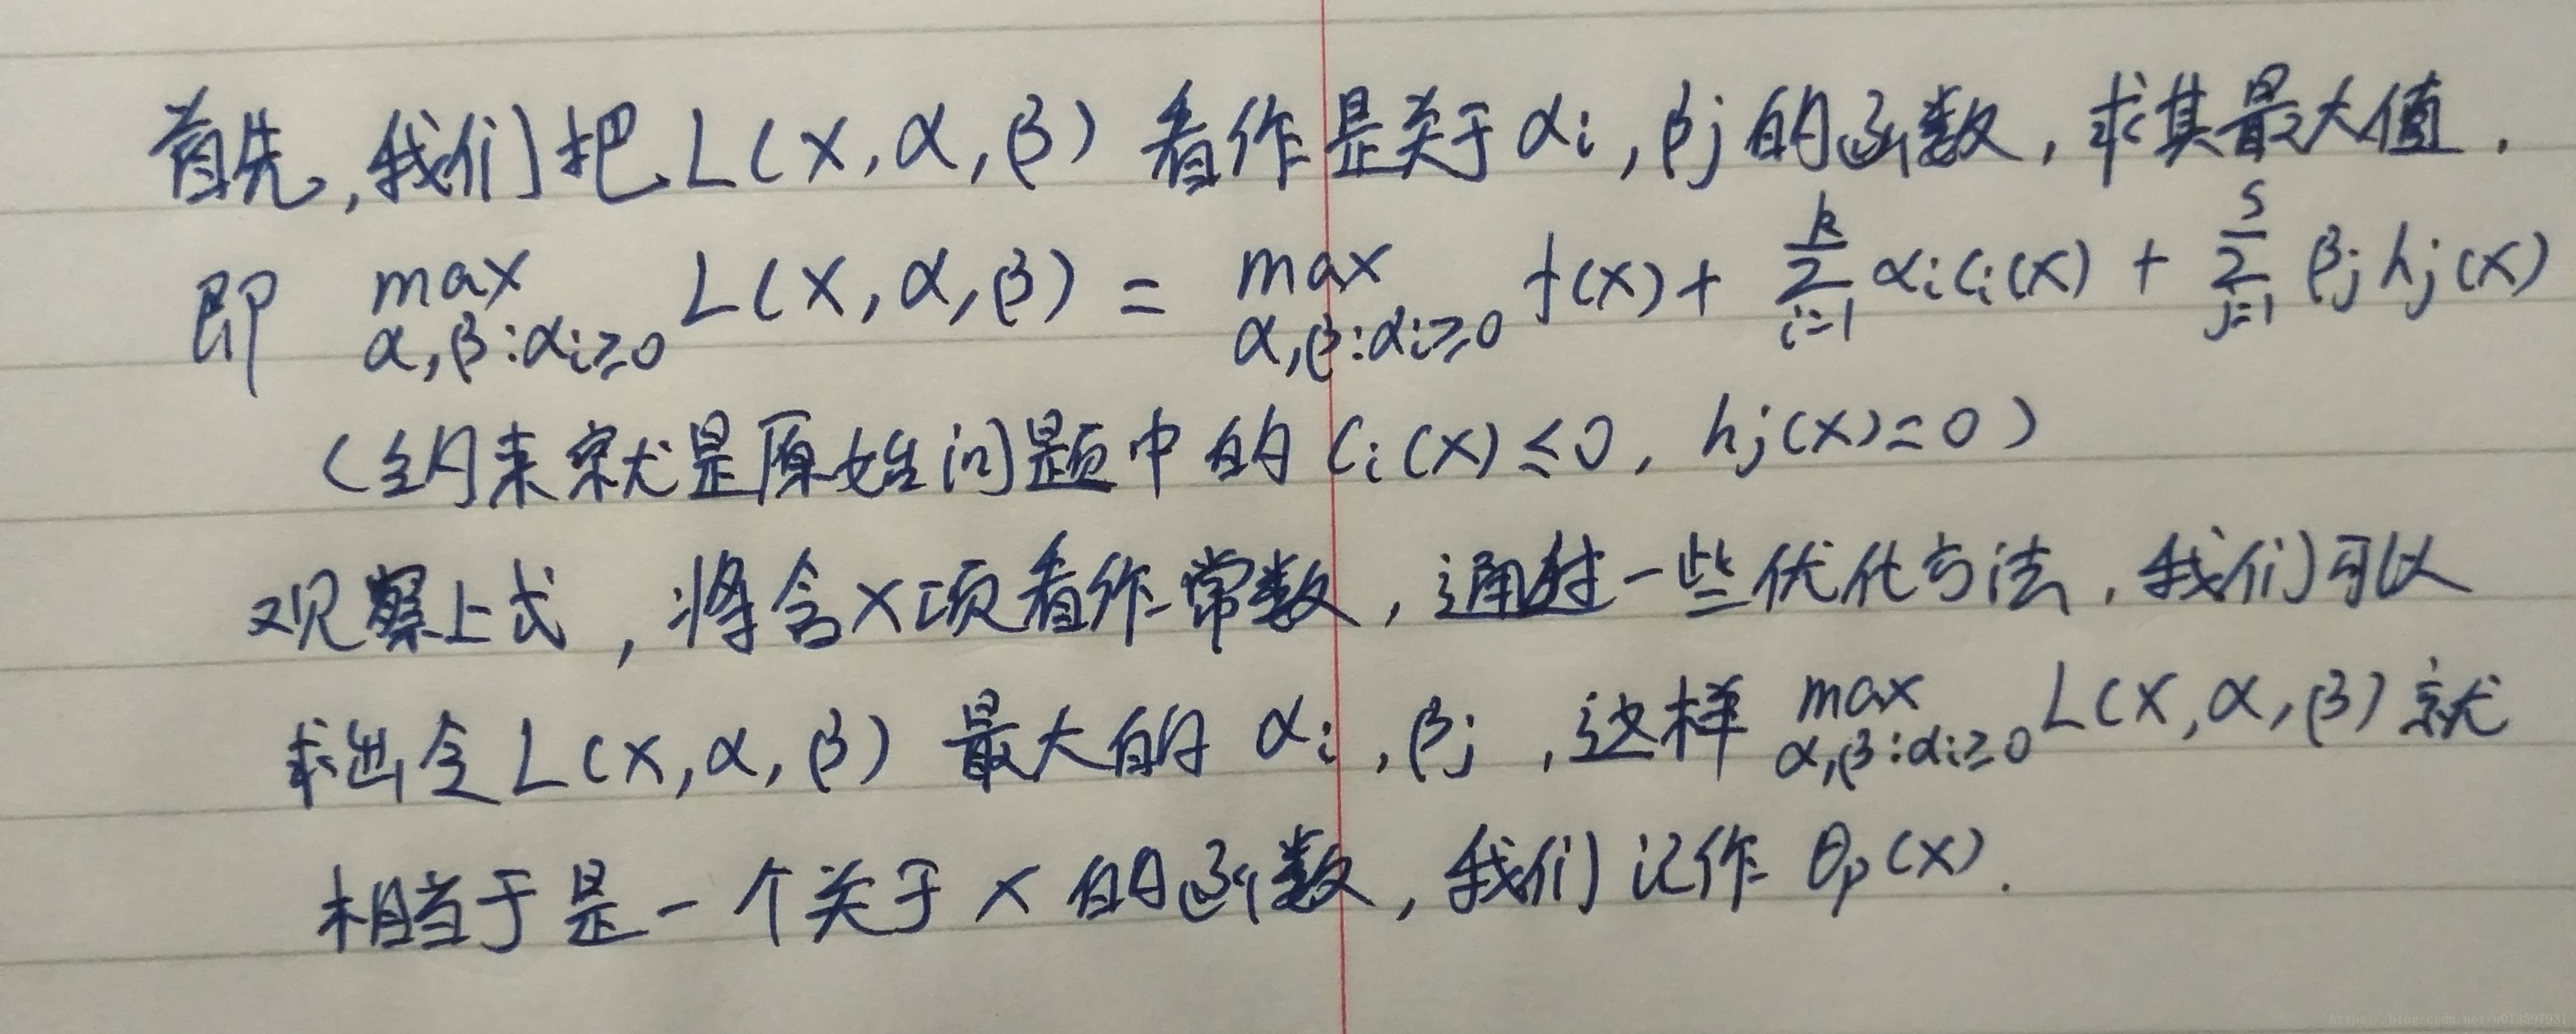 首先,我们把L(x,α,β)看作是关于αi,βj的函数,求其最大值.
即 max α,β:αi≥0 L(x,α,β) = max α,β:αi≥0 f(x) + Σ_{i=1}^{k} αi ci(x) + Σ_{j=1}^{s} βj hj(x)
(约束就是原始问题中的 Ci(x)≤0, hj(x)=0)
观察上式,将含x项看作常数,通过一些优化方法,我们可以
求出令L(x,α,β)最大的αi,βj,这样 max α,β:αi≥0 L(x,α,β)就
相当于是一个关于x的函数,我们记作 θp(x).
https://blog.csdn.net/u013597931